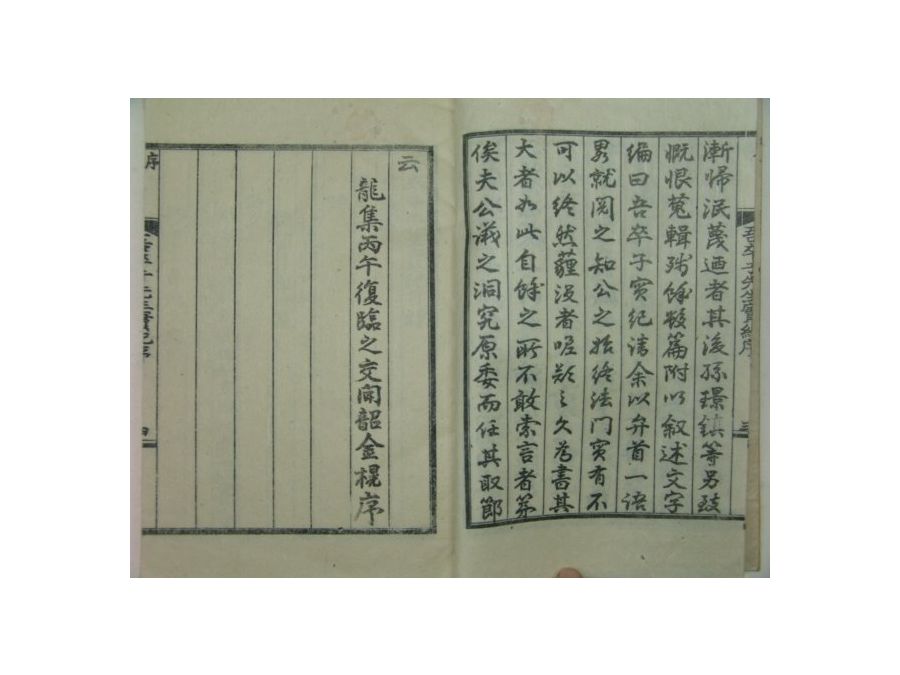 吾卒子先生實紀序 三
漸帰泯蔑迺者其後孫璟鎮等另致
慨恨蒐輯殘餘數篇附以叙述文字
編曰吾卒子實紀請余以弁首一語
畧就閱之知公之始終法门實有不
可以終然薶没者嗟歎之久為書其
大者如此自餘之所不敢索言者第
俟夫公議之洞究原委而任其取節
云
龍集丙午復臨之交聞韶金榥序
序